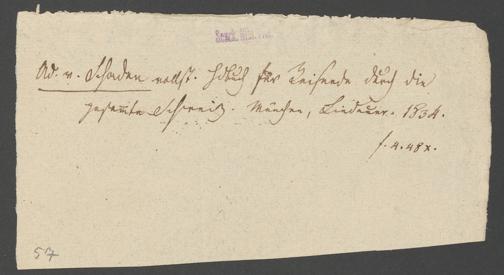 Ad. v. Schaden vollst. Hdbuch für Reisende durch die
gesammte Schweiz. München, Lindauer. 1834.
f. 4.48x.
57